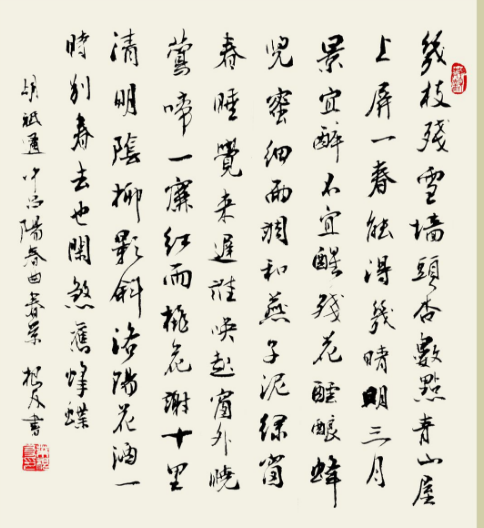 幾枝殘雪墻頭杏數點青山屋
上屏一春能得幾晴明三月
景宜醉不宜醒殘花醞釀蜂
兒蜜細雨調和燕子泥綠窗
春睡覺來遲誰喚起窗外曉
鶯啼一簾紅雨桃花謝十里
清明陰柳影斜洛陽花酒一
時別春去也閑煞舊蜂蝶
胡祗遹中呂陽春曲春景 書